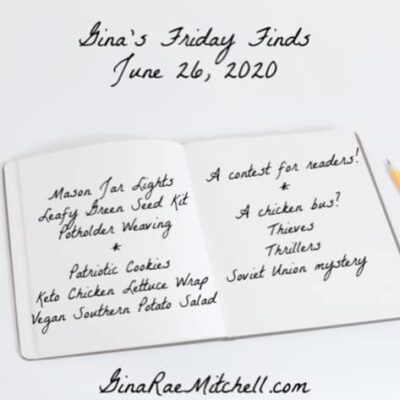 Gina's Friday Finds
June 26, 2020
Mason Jar Lights
Leafy Green Seed Kit
Potholder Weaving
*
Patriotic Cookies
Keto Chicken Lettuce Wrap
Vegan Southern Potato Salad
A contest for readers!
*
A chicken bus?
Thieves
Thrillers
Soviet Union mystery
GinaRaeMitchell.com